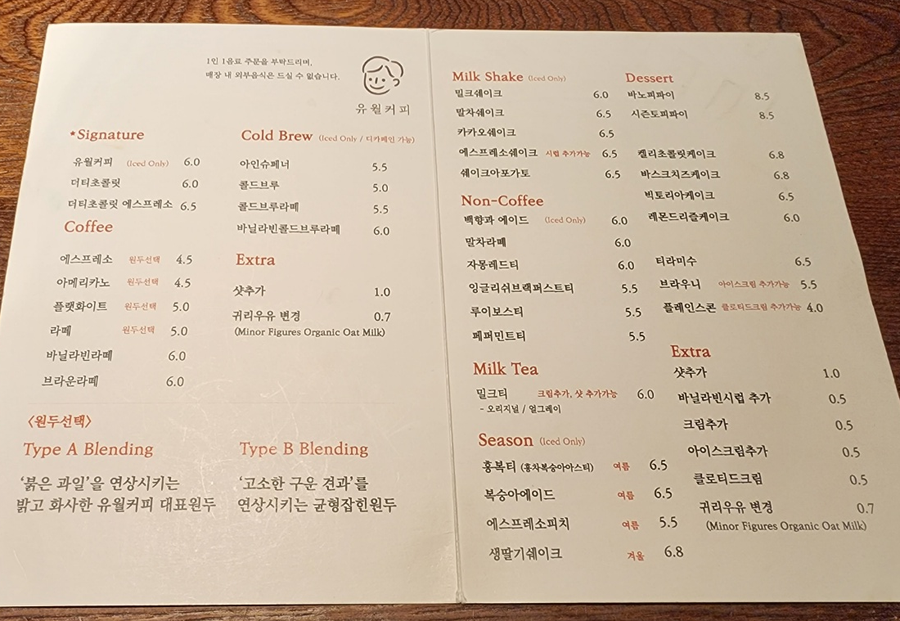 1인 1음료 주문을 부탁드리며,
매장 내 외부음식은 드실 수 없습니다.
유월커피
★Signature
유월커피 (Iced Only) 6.0
더티초콜릿 6.0
더티초콜릿 에스프레소 6.5
Coffee
에스프레소 원두선택 4.5
아메리카노 원두선택 4.5
플랫화이트 원두선택 5.0
라떼 원두선택 5.0
바닐라빈라떼 6.0
브라운라떼 6.0
Cold Brew (Iced Only / 디카페인 가능)
아인슈페너 5.5
콜드브루 5.0
콜드브루라떼 5.5
바닐라빈콜드브루라떼 6.0
Extra
샷추가 1.0
귀리우유 변경 0.7
(Minor Figures Organic Oat Milk)
〈원두선택〉
Type A Blending
'붉은 과일'을 연상시키는
밝고 화사한 유월커피 대표원두
Type B Blending
'고소한 구운 견과'를
연상시키는 균형잡힌원두
Milk Shake (Iced Only)
밀크쉐이크 6.0
말차쉐이크 6.5
카카오쉐이크 6.5
에스프레소쉐이크 시럽 추가가능 6.5
쉐이크아포가토 6.5
Non-Coffee
백향과 에이드 (Iced Only) 6.0
말차라떼 6.0
자몽레드티 6.0
잉글리쉬브랙퍼스트티 5.5
루이보스티 5.5
페퍼민트티 5.5
Milk Tea
밀크티 크림추가, 샷 추가가능 6.0
- 오리지널 / 얼그레이
Season (Iced Only)
홍복티 (홍차복숭아아스티) 여름 6.5
복숭아에이드 여름 6.5
에스프레소피치 여름 5.5
생딸기쉐이크 겨울 6.8
Dessert
바노피파이 8.5
시즌토피파이 8.5
켈리초콜릿케이크 6.8
바스크치즈케이크 6.8
빅토리아케이크 6.5
레몬드리즐케이크 6.0
티라미수 6.5
브라우니 아이스크림 추가가능 5.5
플레인스콘 클로티드크림 추가가능 4.0
Extra
샷추가 1.0
바닐라빈시럽 추가 0.5
크림추가 0.5
아이스크림추가 0.5
클로티드크림 0.5
귀리우유 변경 0.7
(Minor Figures Organic Oat Milk)